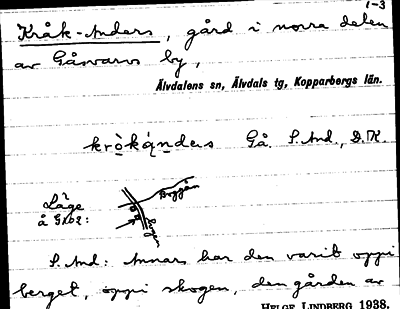 1-3
Kråk-Anders, gård i norra delen
av Gåsvarvs by,
Älvdalens sn, Älvdals tg, Kopparbergs län.
Gå. S. And., D. K.
Läge
å GK02:
S. And: Annars har den varit oppi
berget, oppi skogen, den gården av
HELGE LINDBERG 1938.